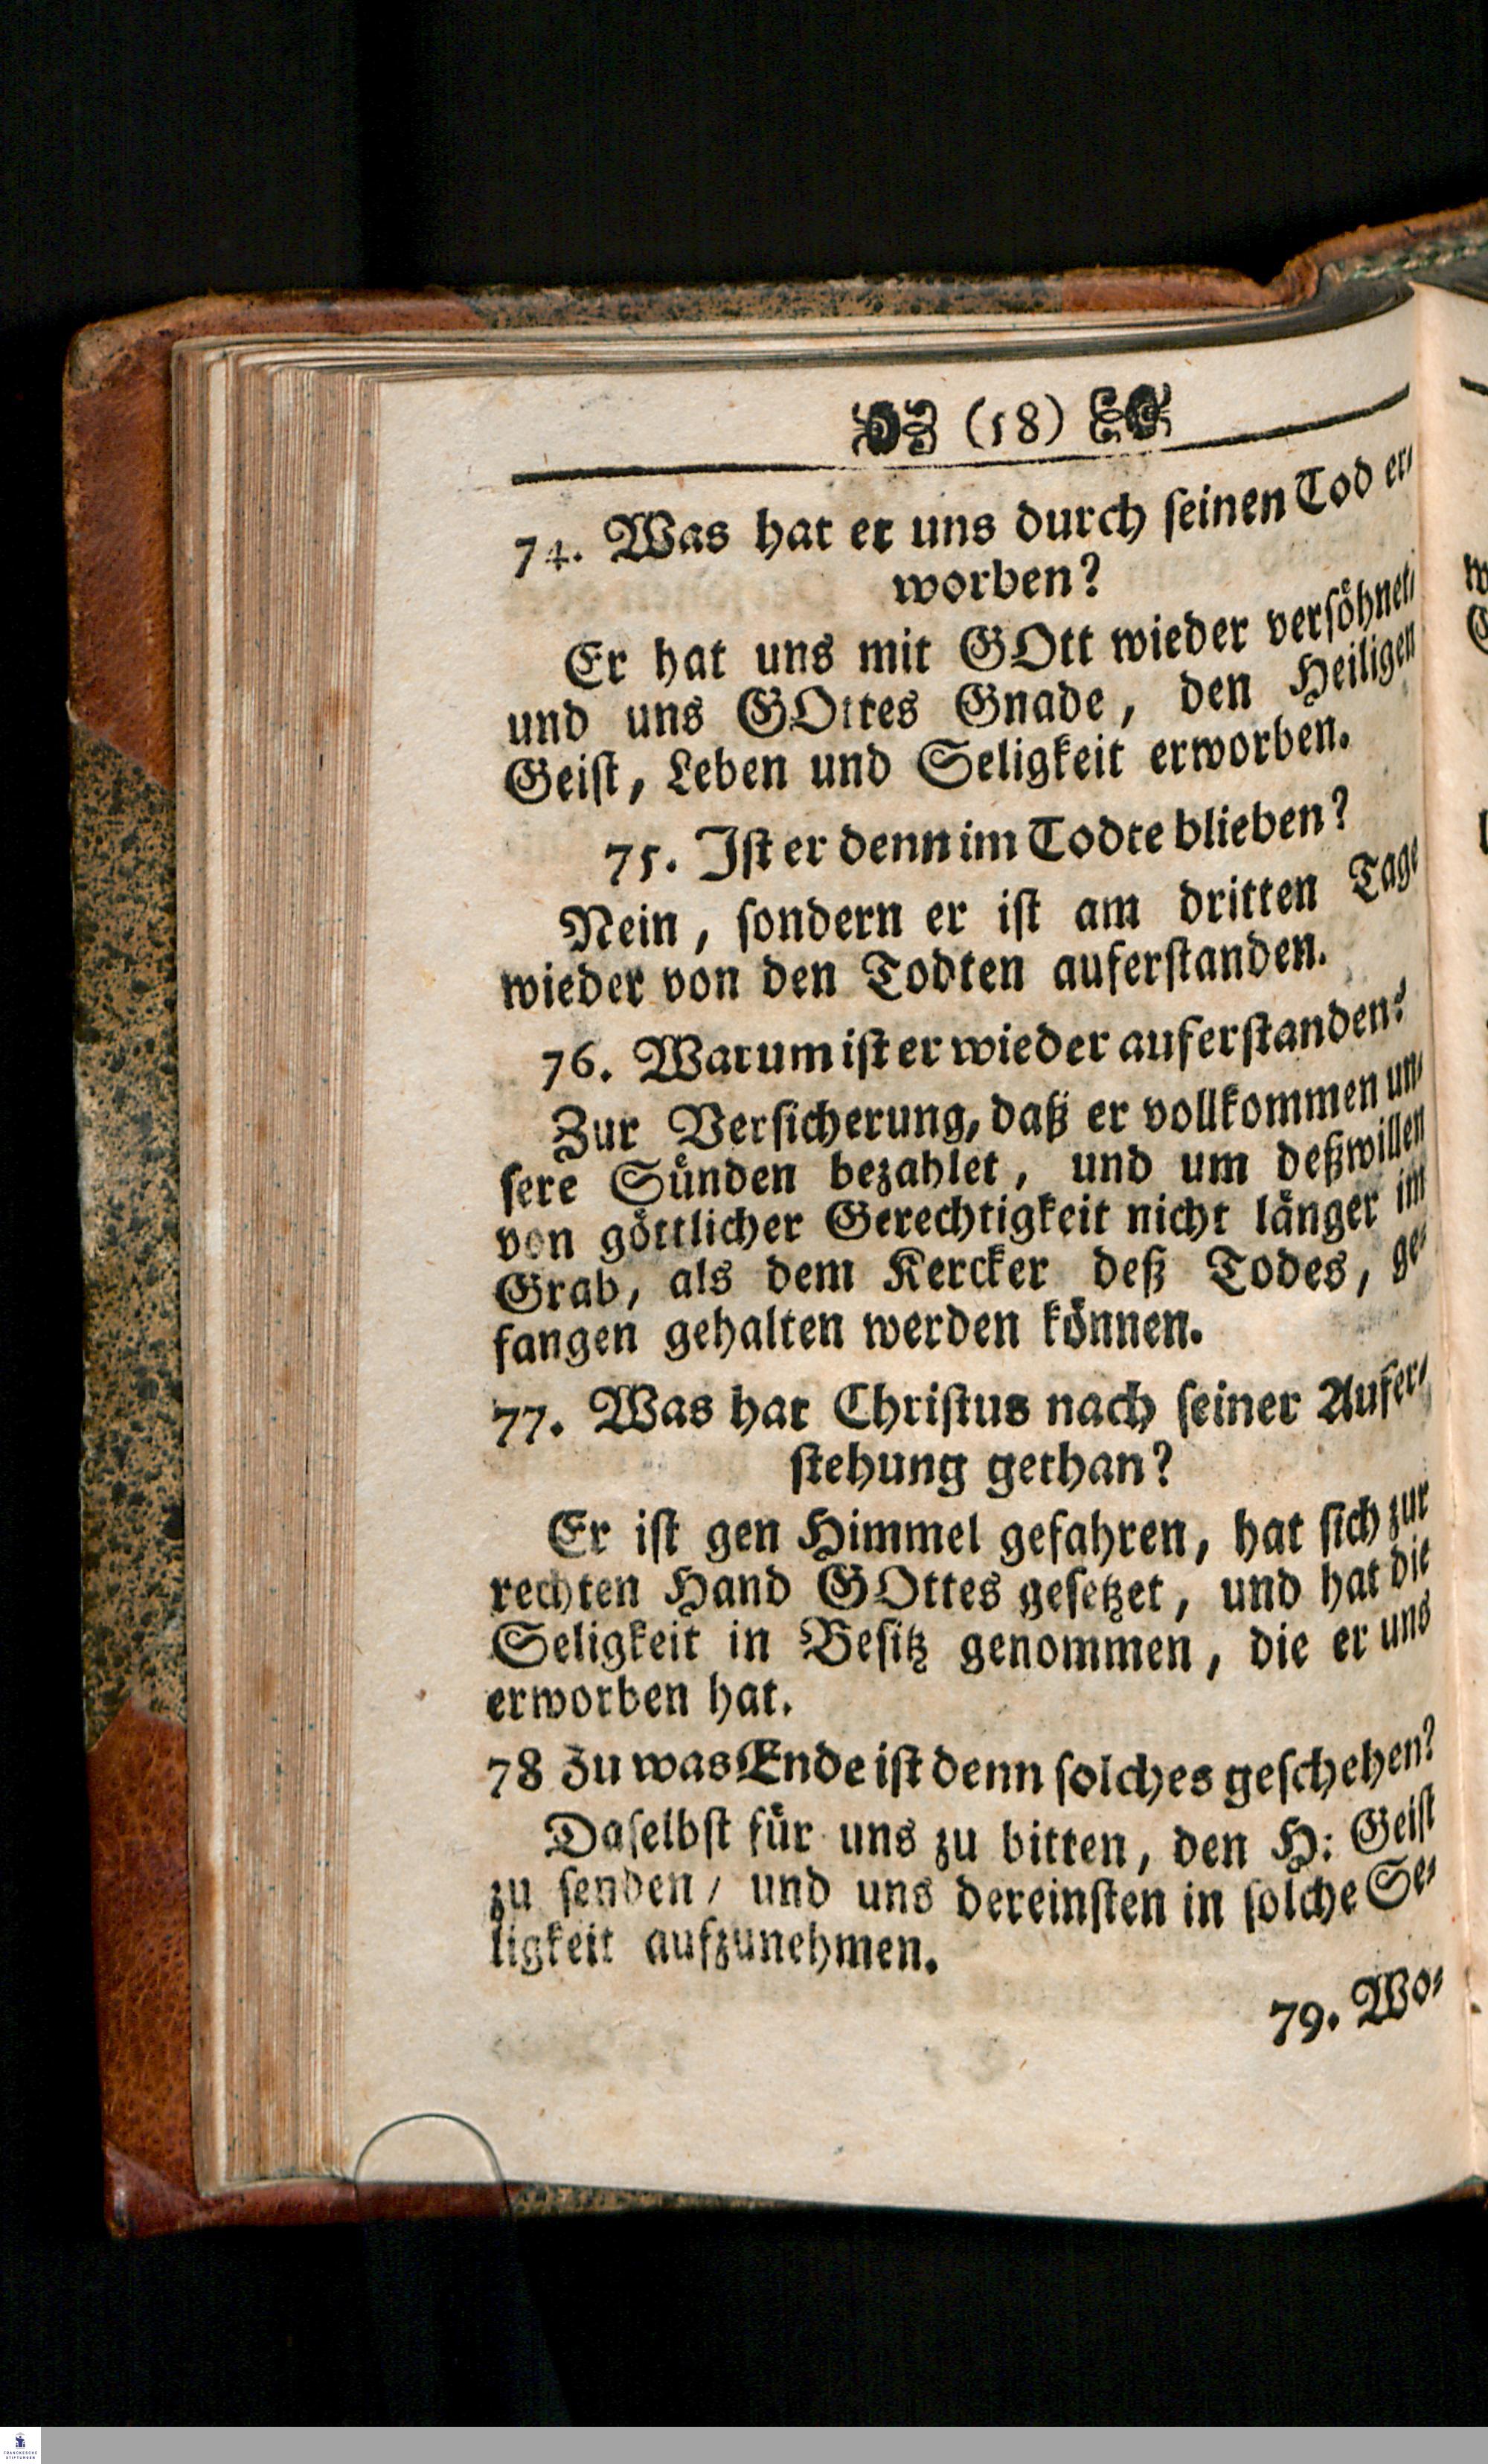 (18)
74. Was hat er uns durch ſeinen Tod er⸗
worben?
Er hat uns mit GOtt wieder verſöhnet/
und uns GOttes Gnade, den Heiligen
Geiſt, Leben und Seligkeit erworben.
75. Iſt er denn im Todte blieben?
Nein, ſondern er iſt am dritten Tage
wieder von den Todten auferſtanden.
76. Warum iſt er wieder auferſtanden?
Zur Verſicherung, daß er vollkommen un⸗
ſere Sünden bezahlet, und um deßwillen
von göttlicher Gerechtigkeit nicht länger im
Grab, als dem Kercker deß Todes, ge⸗
fangen gehalten werden können.
77. Was hat Chriſtus nach ſeiner Aufer⸗
ſtehung gethan?
Er iſt gen Himmel gefahren, hat ſich zur
rechten Hand GOttes geſetzet, und hat die
Seligkeit in Beſitz genommen, die er uns
erworben hat.
78 Zu was Ende iſt denn ſolches geſchehen?
Daſelbſt für uns zu bitten, den H: Geiſt
zu ſenden / und uns dereinſten in ſolche Se⸗
ligkeit aufzunehmen.
79. Wo⸗
FRANCKESCHE
STIFTUNGEN